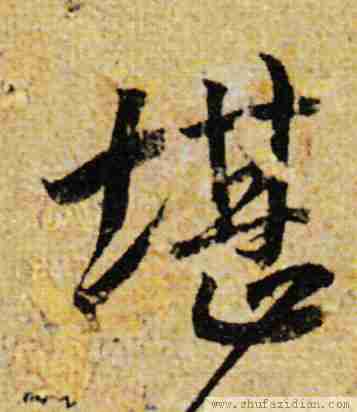 堪
www.shufazidian.com